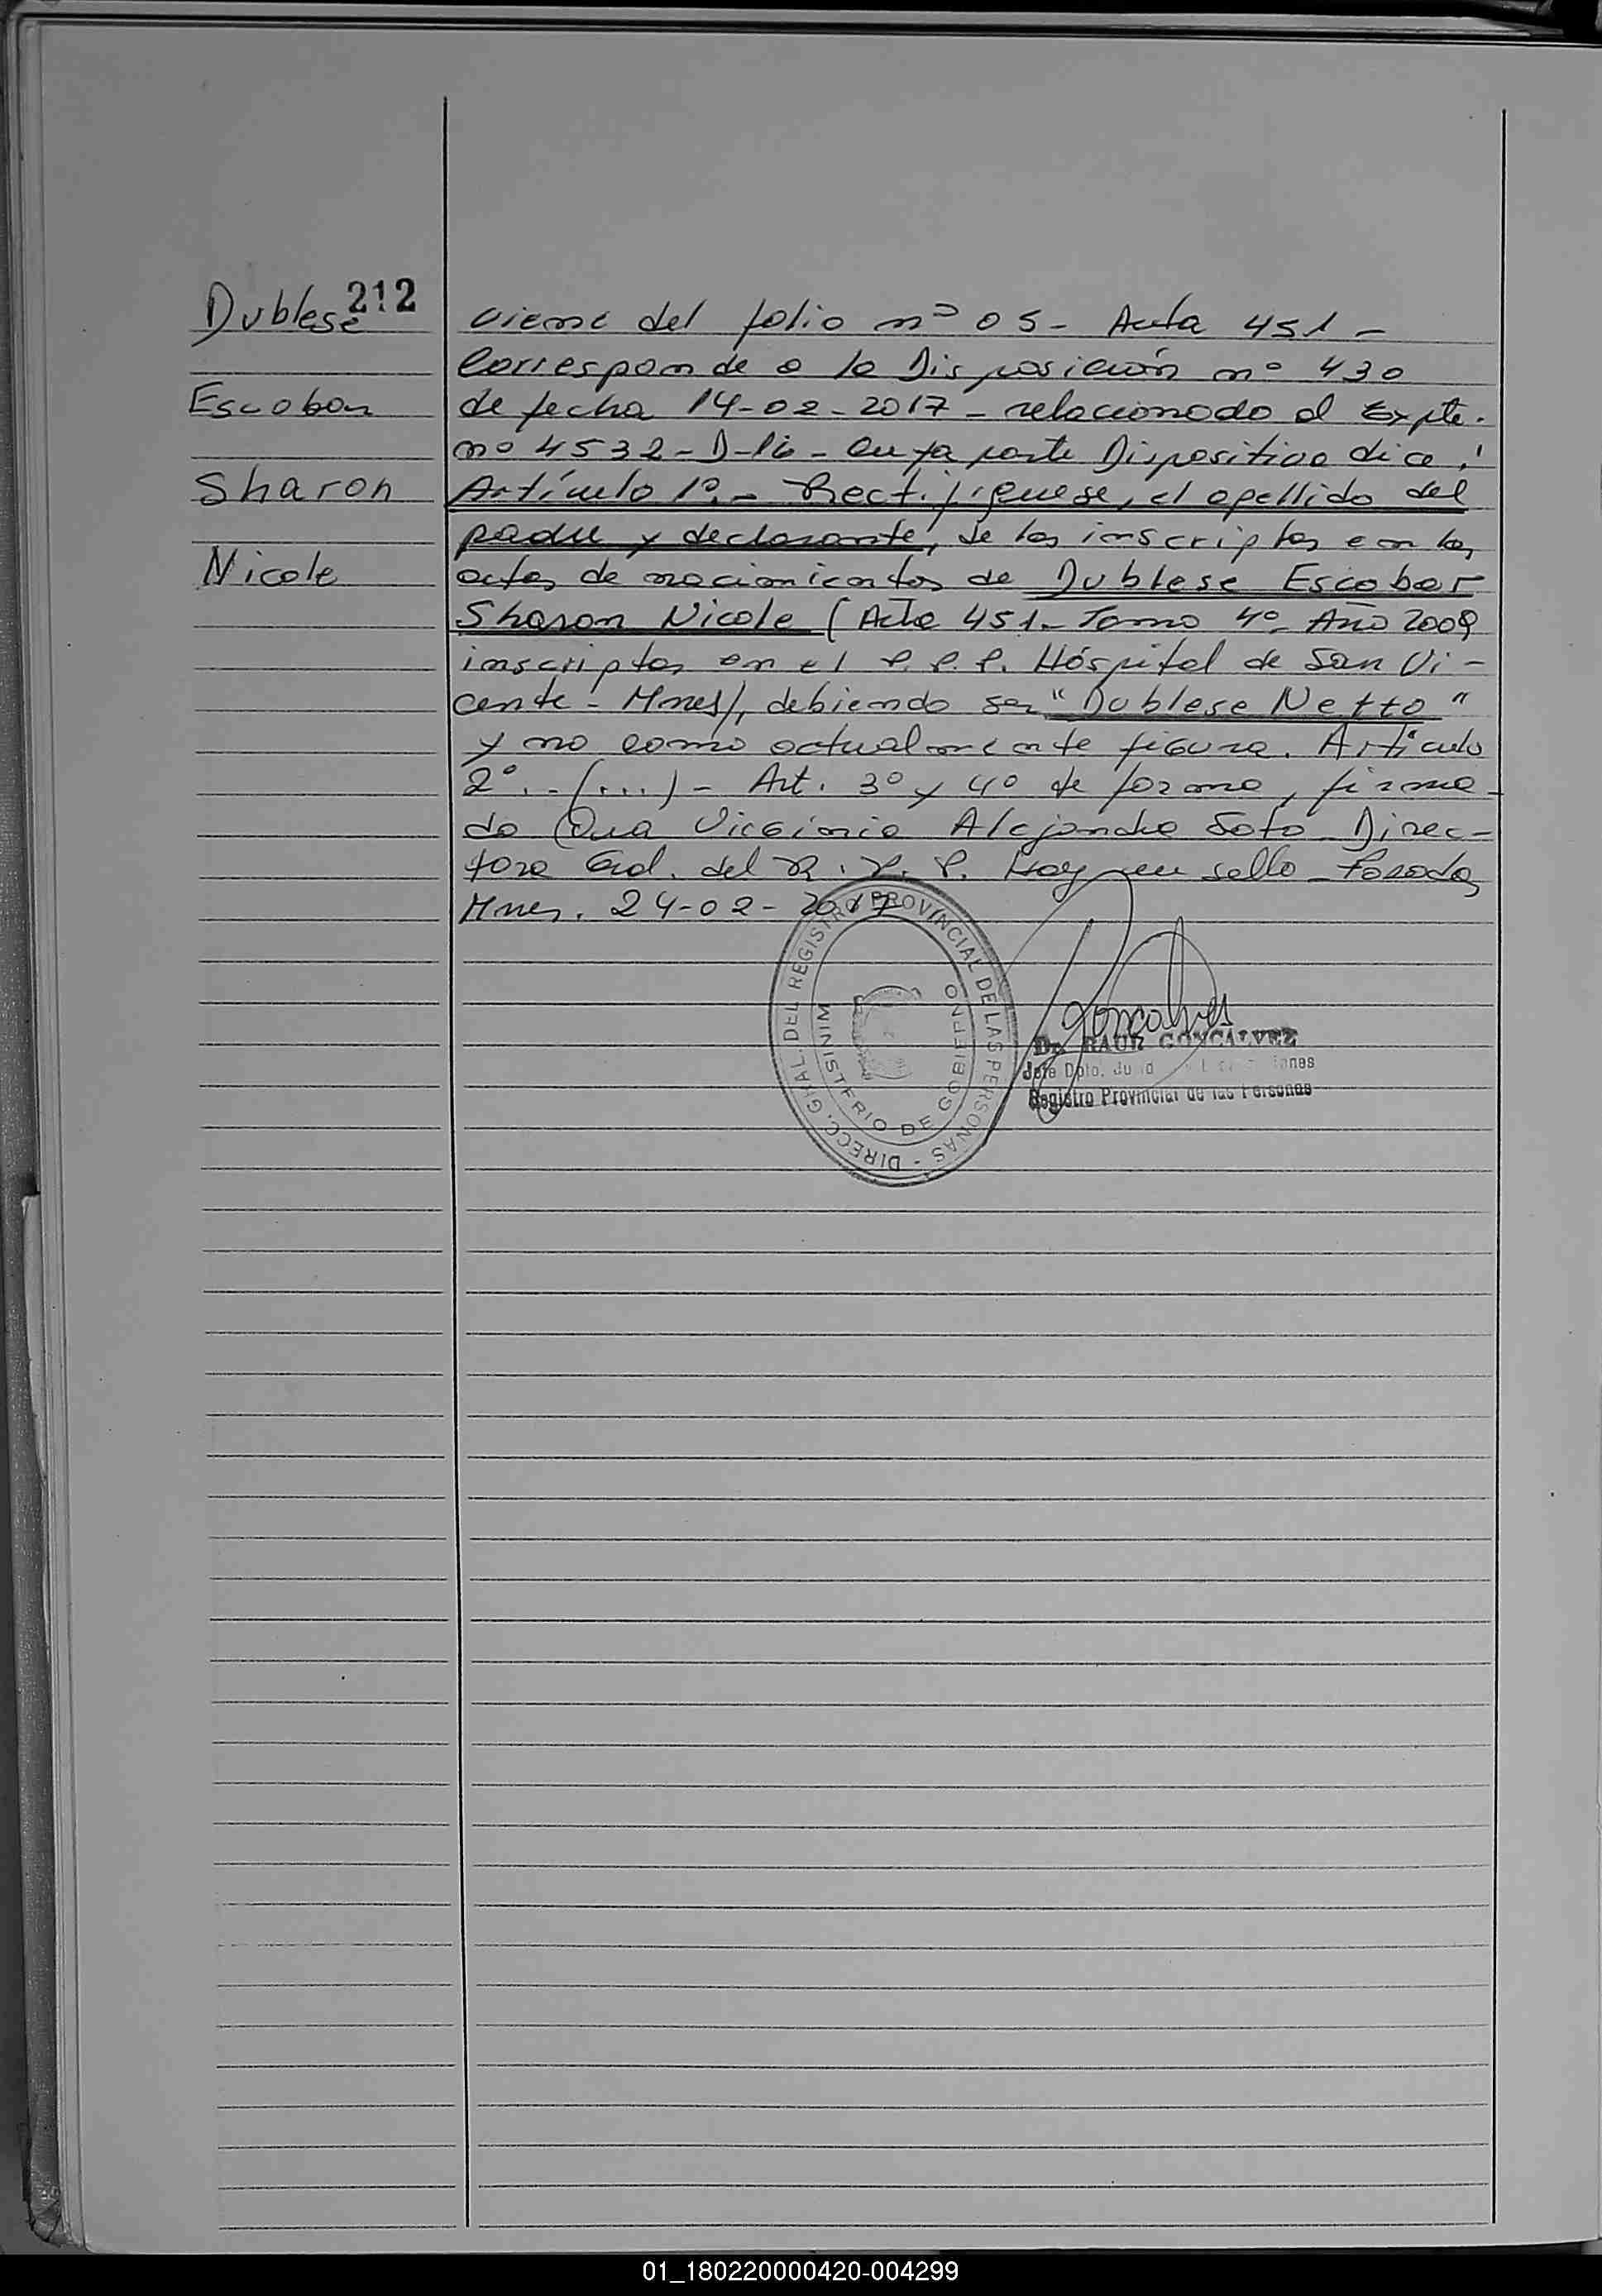 212
Dublese
Escobar
Sharon
Nicole
viene del folio nº 05 - Acta 451 -
Corresponde a la Disposición nº 430
de fecha 14-02-2017 - relacionado al Expte.
nº 4532-D-16 - cuya parte Dispositiva dice:
Artículo 1º.- Rectifíquese, el apellido del
padre y declarante, de los inscriptos en las
actas de nacimientos de Dublese Escobar
Sharon Nicole (Acta 451 - Tomo 4º - Año 2009
inscriptos en el R.P.P. Hóspital de San Vi-
cente - Mnes), debiendo ser "Dublese Netto"
y no como actualmente figura. Artículo
2º.- (...) - Art. 3º y 4º de forma, firma-
do Dra Virginia Alejandra Soto Direc-
tora Gral. del R.P.P. Hay un sello - Posadas
Mnes. 24-02-2017
DIRECC. GRAL. DEL REGISTRO PROVINCIAL DE LAS PERSONAS -
MINISTERIO DE GOBIERNO
Goncalves
Dr. RAUL GONCALVEZ
Jefe Dpto.
Registro Provincial de las Personas
01_180220000420-004299